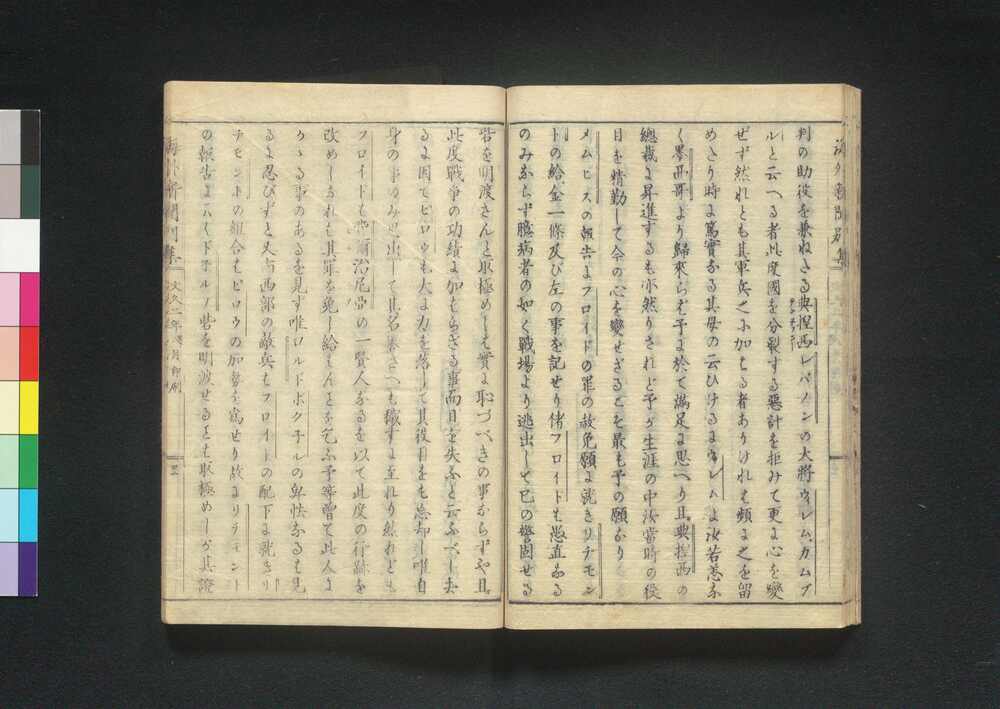 海外新聞別集
判の助役を兼ねたる典捏西レバノンの大將ウィレム、カムブ
テネシー
ルと云へる者此度國を分裂する惡計を拒みて更に心を變
ぜず然れとも其軍兵之に加はる者ありけれは頻に之を留
めたり時に篤實なる其母の云ひけるはウィレムよ汝若恙な
く墨西哥より歸來らば予に於て滿足に思へり且典捏西の
總裁に昇進するも亦然りされど予が生涯の中汝當時の役
目を精勤して今の心を變せざることを最も予の願なり
メムヒスの報告にフロイドの罪の赦免願に就きリチモン
トの給金一條及び左の事を記せり偖フロイドは愚直なる
のみならず臆病者の如く戰場より逃出して己の警固せる
砦を明渡さんと取極めしは實に恥づべきの事ならずや且
此度戰爭の功績に加はらざる事面目を失ふと云ふべし去
るに因てピロウも大に力を落して其役目をも忘却し唯自
身の事のみ思出して其名譽さへも穢すに至れり然れども
フロイドも勿爾治尼亞の一賢人なるを以て此度の行跡を
改めしたれは其罪を免し給はんことを乞ふ予等曾て此人に
かゝる事のあるを見ず唯ロルドボクネルの卑怯なるは見
るに忍びずと又南西部の敵兵もフロイドの配下に就きリ
チモンドの組合もピロウの加勢を爲せり故にリチモンド
の報告に ドネルソン砦を明渡せることは取極めしが其證
海外新聞別集
文久二年 月印刷
三